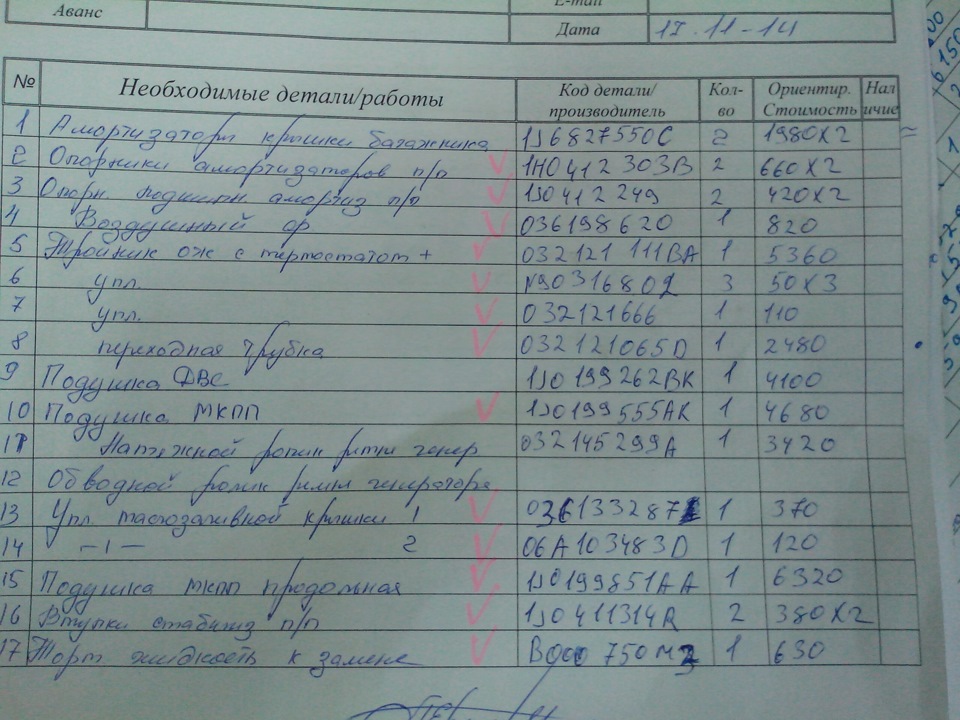 E-mail
Аванс
Дата 17.11-14
№ Необходимые детали/работы Код детали/производитель Кол-во Ориентир. Стоимость Наличие
1 Амортизаторы крышки багажника 1J6827550C 2 1980X2
2 Опорники амортизаторов п/п 1H0412303B 2 660X2
3 Опорн. подшипн. амортиз п/п 1J0412249 2 420X2
4 Воздушный фр 036198620 1 820
5 Тройник ож с термостатом + 032121111BA 1 5360
6 упл. N90316802 3 50X3
7 упл. 032121666 1 110
8 переходная трубка 032121065D 1 2480
9 Подушка ДВС 1J0199262BK 1 4100
10 Подушка МКПП 1J0199555AK 1 4680
11 Натяжной ролик ремня генер 032145299A 1 3420
12 Обводной ролик ремня генератора
13 Упл. маслозаливной крышки 1 1 370
14 -1- 2 06A103483D 1 120
15 Подушка МКПП продольная 1J0199851AA 1 6320
16 Втулки стабилиз п/п 1J0411314R 2 380X2
17 Торм жидкость к замене B000750M3 1 630